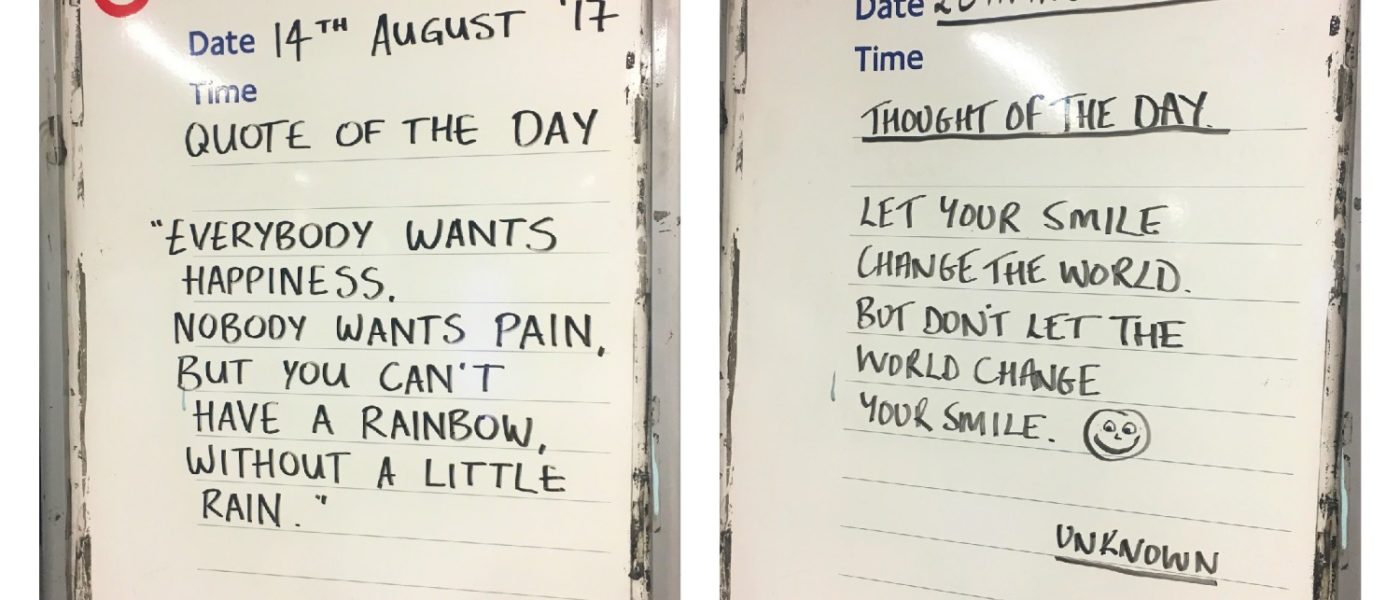 Date 14TH AUGUST '17
Time
QUOTE OF THE DAY
"EVERYBODY WANTS
HAPPINESS.
NOBODY WANTS PAIN,
BUT YOU CAN'T
HAVE A RAINBOW,
WITHOUT A LITTLE
RAIN."
Date
Time
THOUGHT OF THE DAY.
LET YOUR SMILE
CHANGE THE WORLD.
BUT DON'T LET THE
WORLD CHANGE
YOUR SMILE.
UNKNOWN